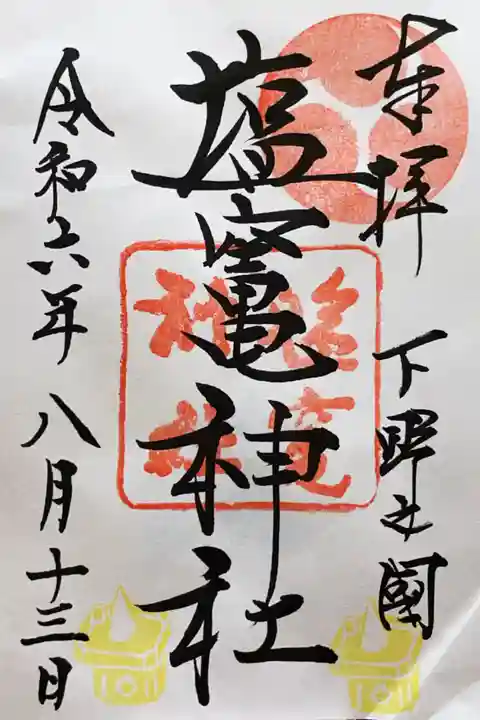 奉拝 下野之國
塩竈神社
令和六年八月十三日